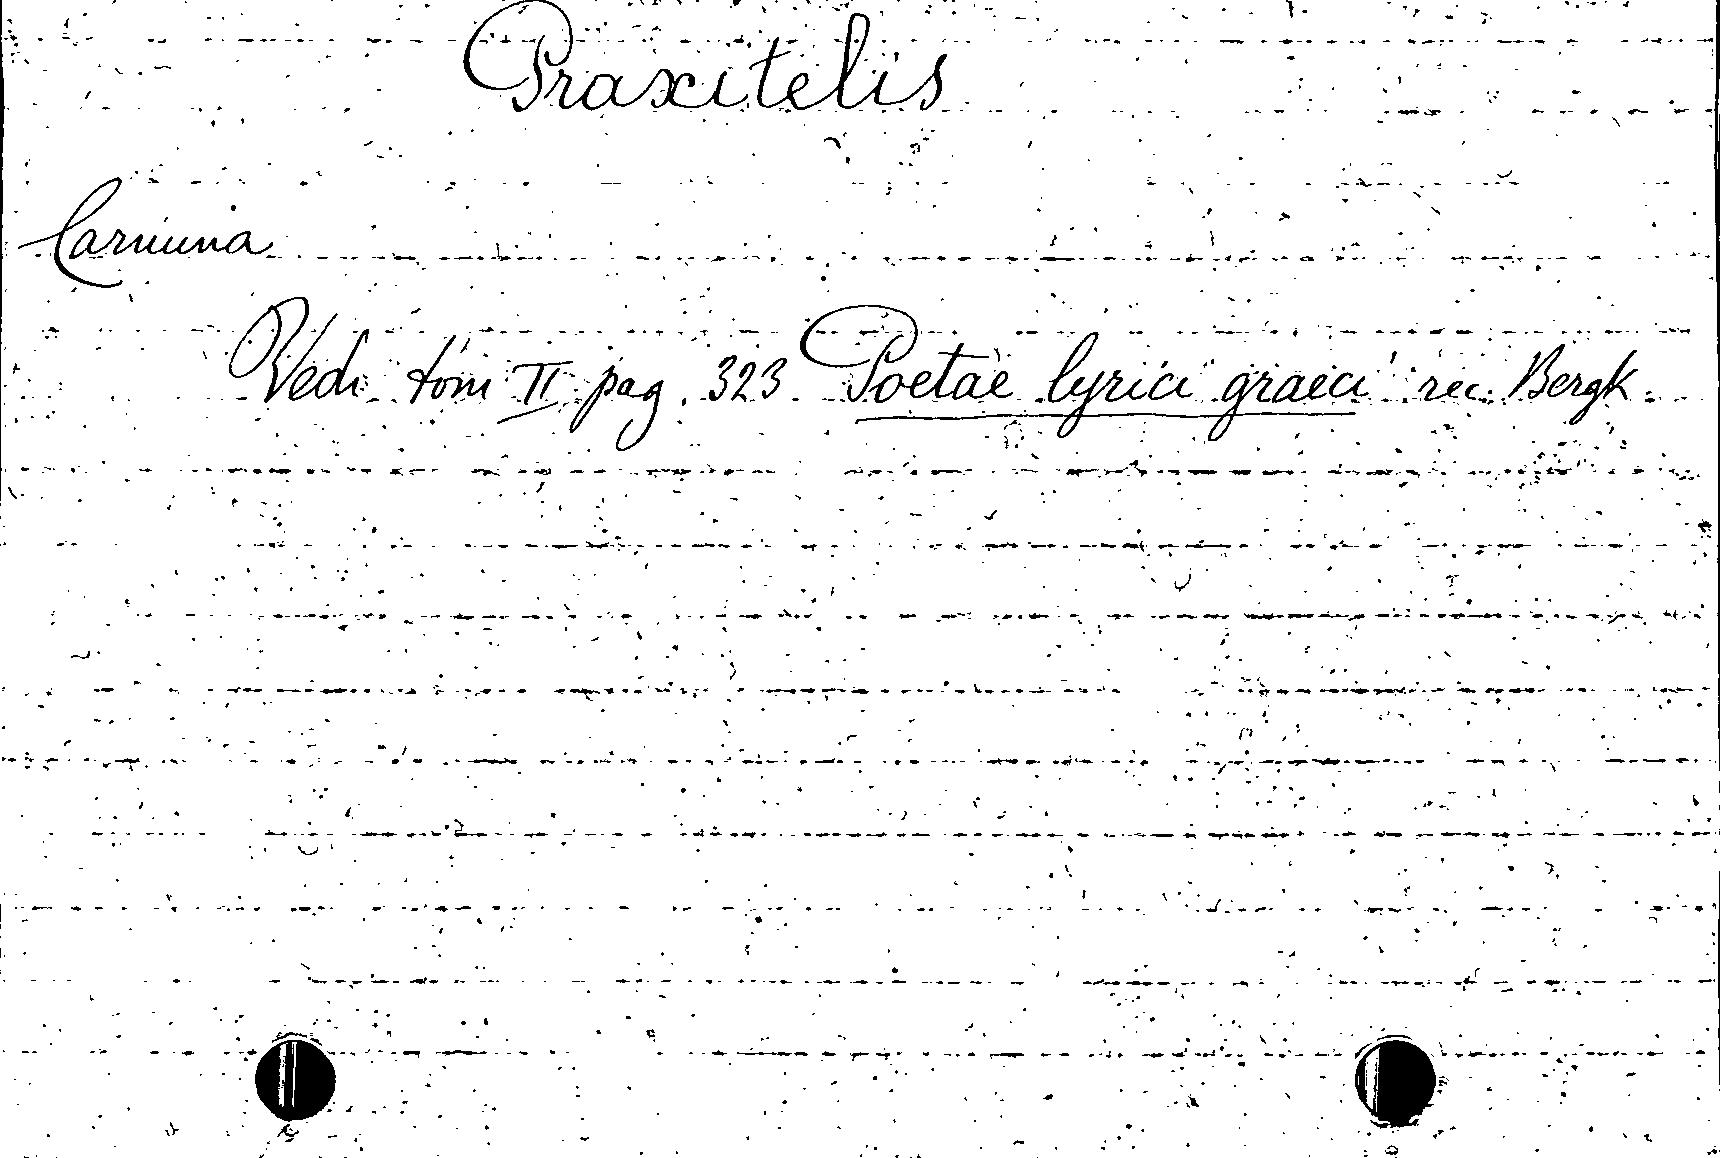 Praxitelis
Carmina
Vedi tom II pag. 323 Poetae lyrici graeci rec. Bergk.